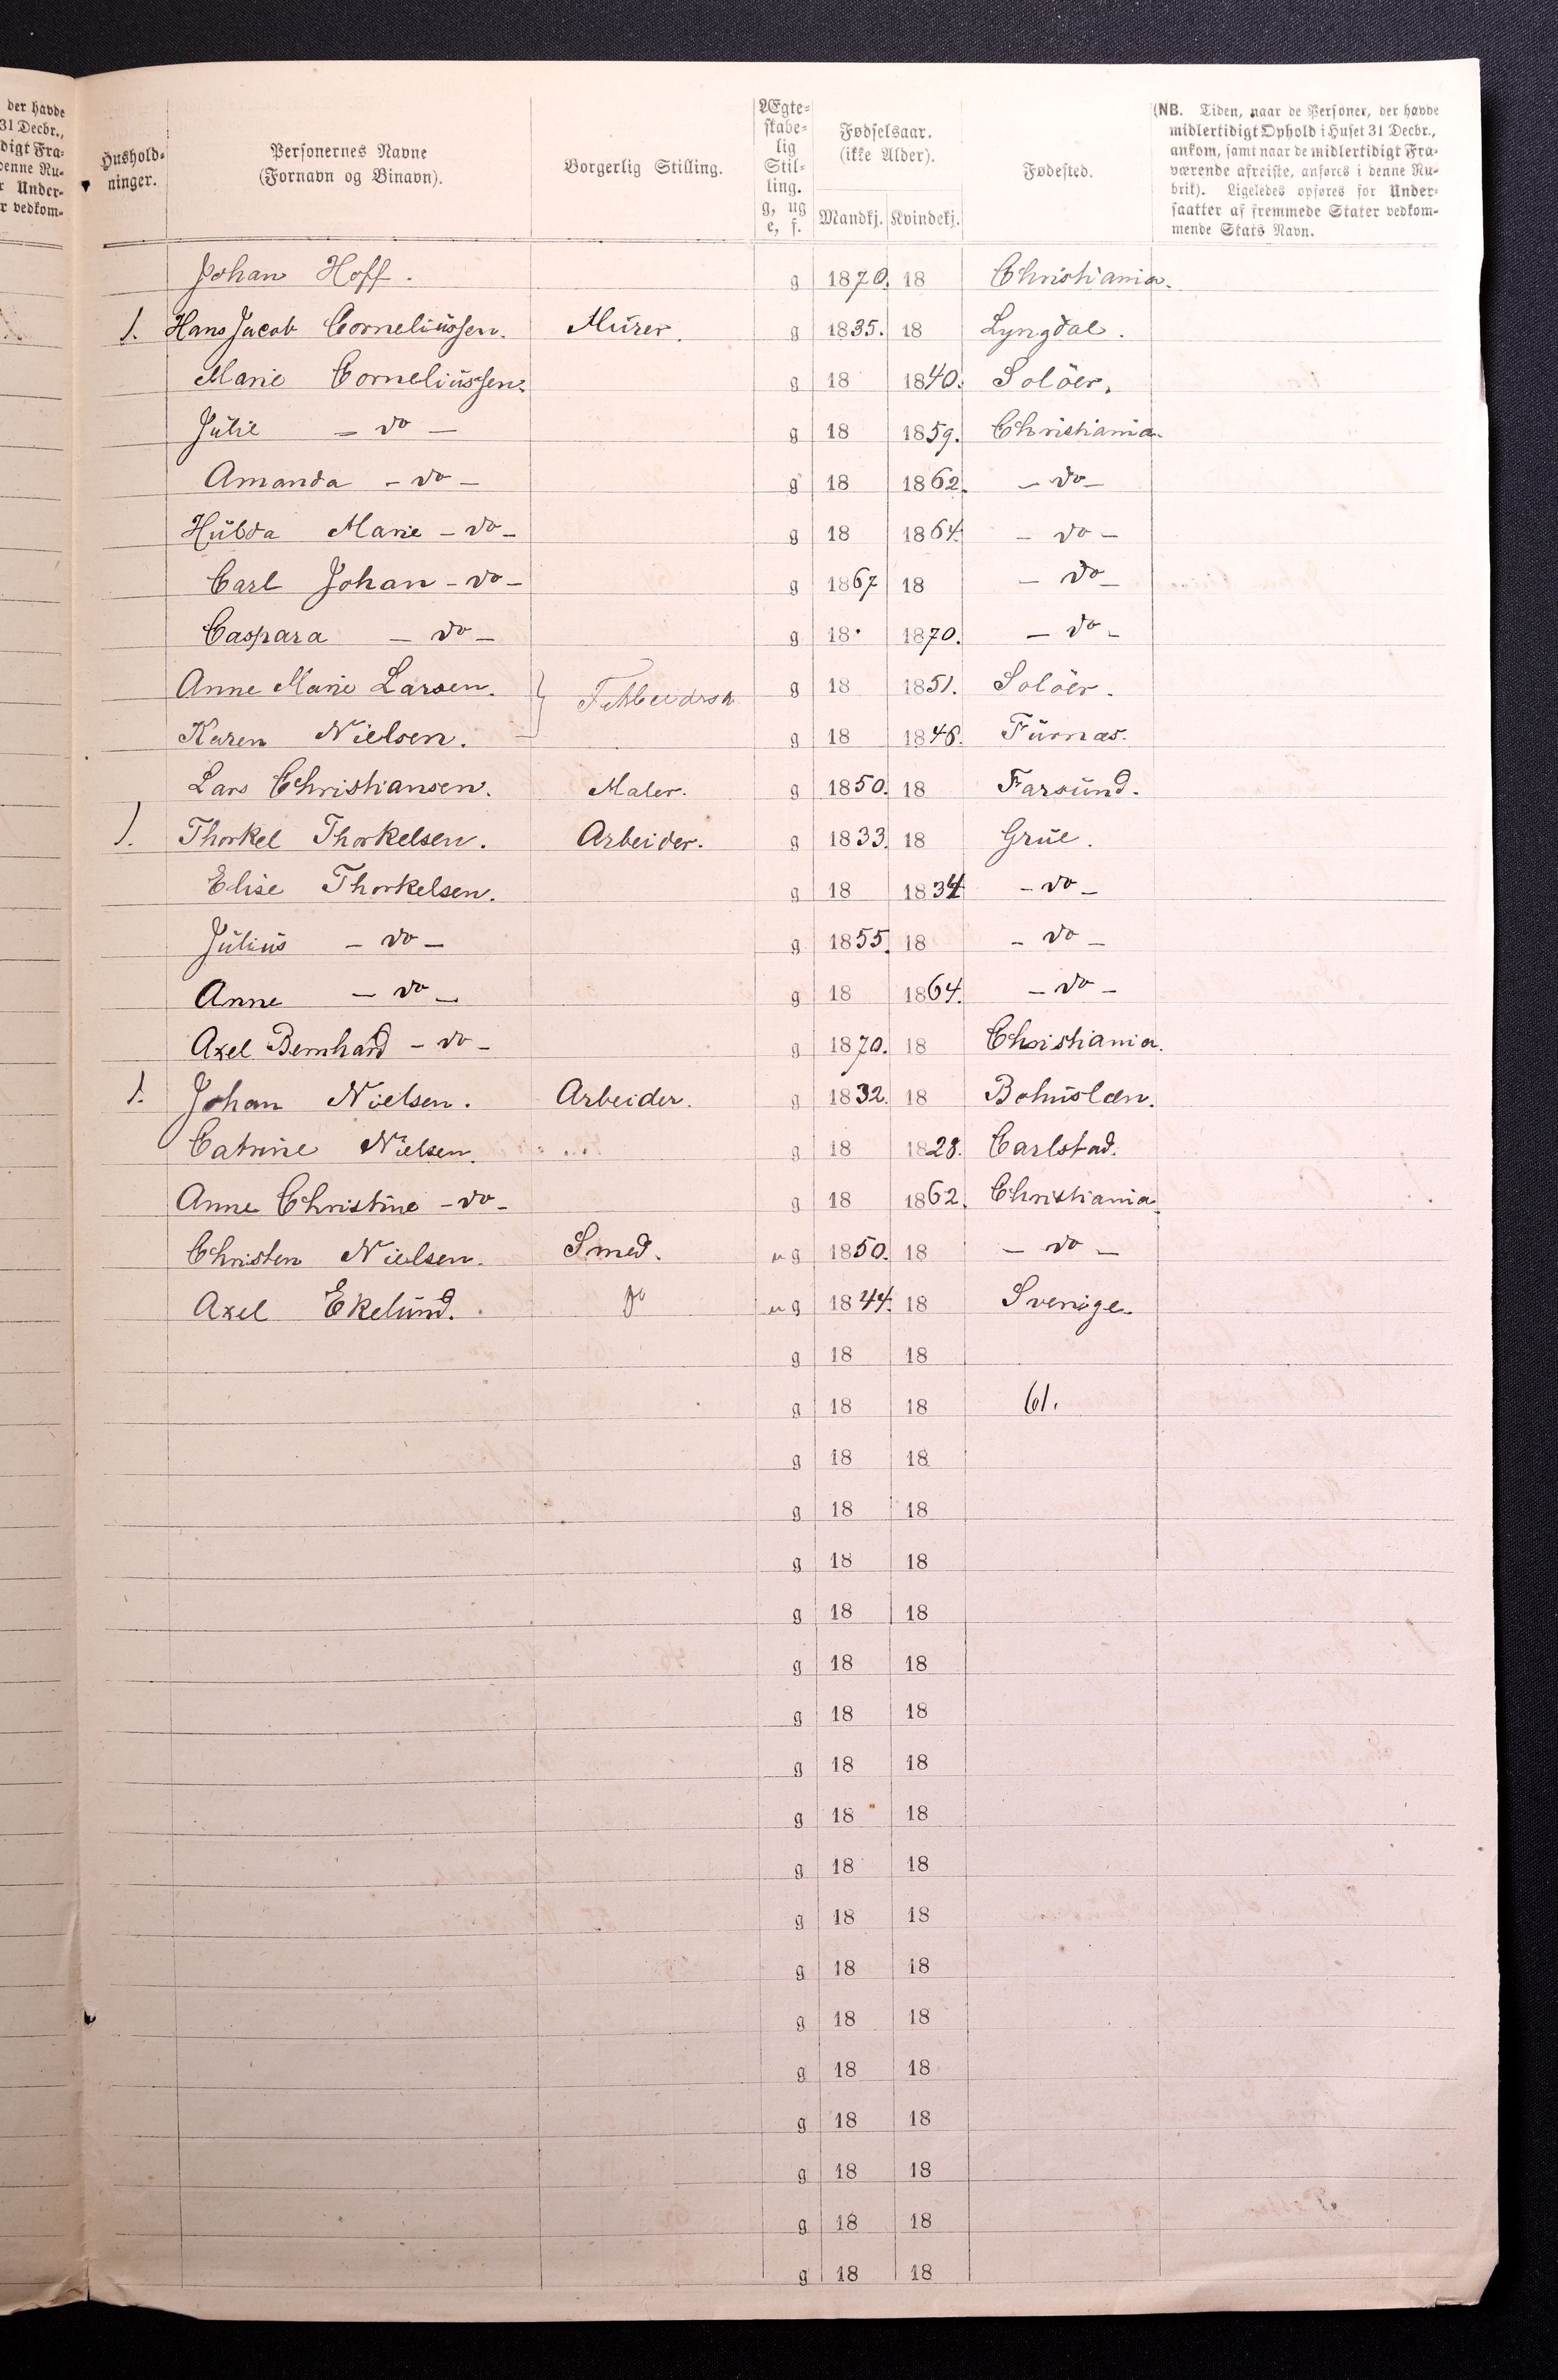 der havde
31 Decbr.,
digt Fra-
denne Ru-
r Under-
r vedkom-
Hushold-
ninger.
Personernes Navne
(Fornavn og Binavn).
Borgerlig Stilling.
Ægte-
skabe-
lig
Stil-
ling.
g, ug
e, f.
Fødselsaar.
(ikke Alder).
Mandkj. Kvindekj.
Fødested.
(NB. Tiden, naar de Personer, der havde
midlertidigt Ophold i Huset 31 Decbr.,
ankom, samt naar de midlertidigt Fra-
værende afreiste, anføres i denne Ru-
brik). Ligeledes opføres for Under-
saatter af fremmede Stater vedkom-
mende Stats Navn.
Johan Hoff. g 1870. 18 Christiania.
1. Hans Jacob Corneliussen. Murer. g 1835. 18 Lyngdal.
Marie Corneliussen. g 18 1840. Solöer.
Julie - do - g 18 1859. Christiania.
Amanda - do - g 18 1862. - do -
Hulda Marie - do - g 18 1864. - do -
Carl Johan - do - g 1867 18 - do -
Caspara - do - g 18 1870. - do -
Anne Marie Larsen. g 18 1851. Solöer.
Karen Nielsen. g 18 1846. Furnæs.
Lars Christiansen. Maler. g 1850. 18 Farsund.
1. Thorkel Thorkelsen. Arbeider. g 1833. 18 Grue.
Elise Thorkelsen. g 18 1834 - do -
Julius - do - g 1855. 18 - do -
Anne - do - g 18 1864. - do -
Axel Bernhard - do - g 1870. 18 Christiania.
1. Johan Nielsen. Arbeider. g 1832. 18 Bohuslæn.
Catrine Nielsen. g 18 1828. Carlstad.
Anne Christine - do - g 18 1862. Christiania.
Christen Nielsen. Smed. ug 1850. 18 - do -
Axel Ekelund. do ug 1844. 18 Sverige.
g 18 18
g 18 18 61.
g 18 18
g 18 18
g 18 18
g 18 18
g 18 18
g 18 18
g 18 18
g 18 18
g 18 18
g 18 18
g 18 18
g 18 18
g 18 18
g 18 18
g 18 18
g 18 18
g 18 18